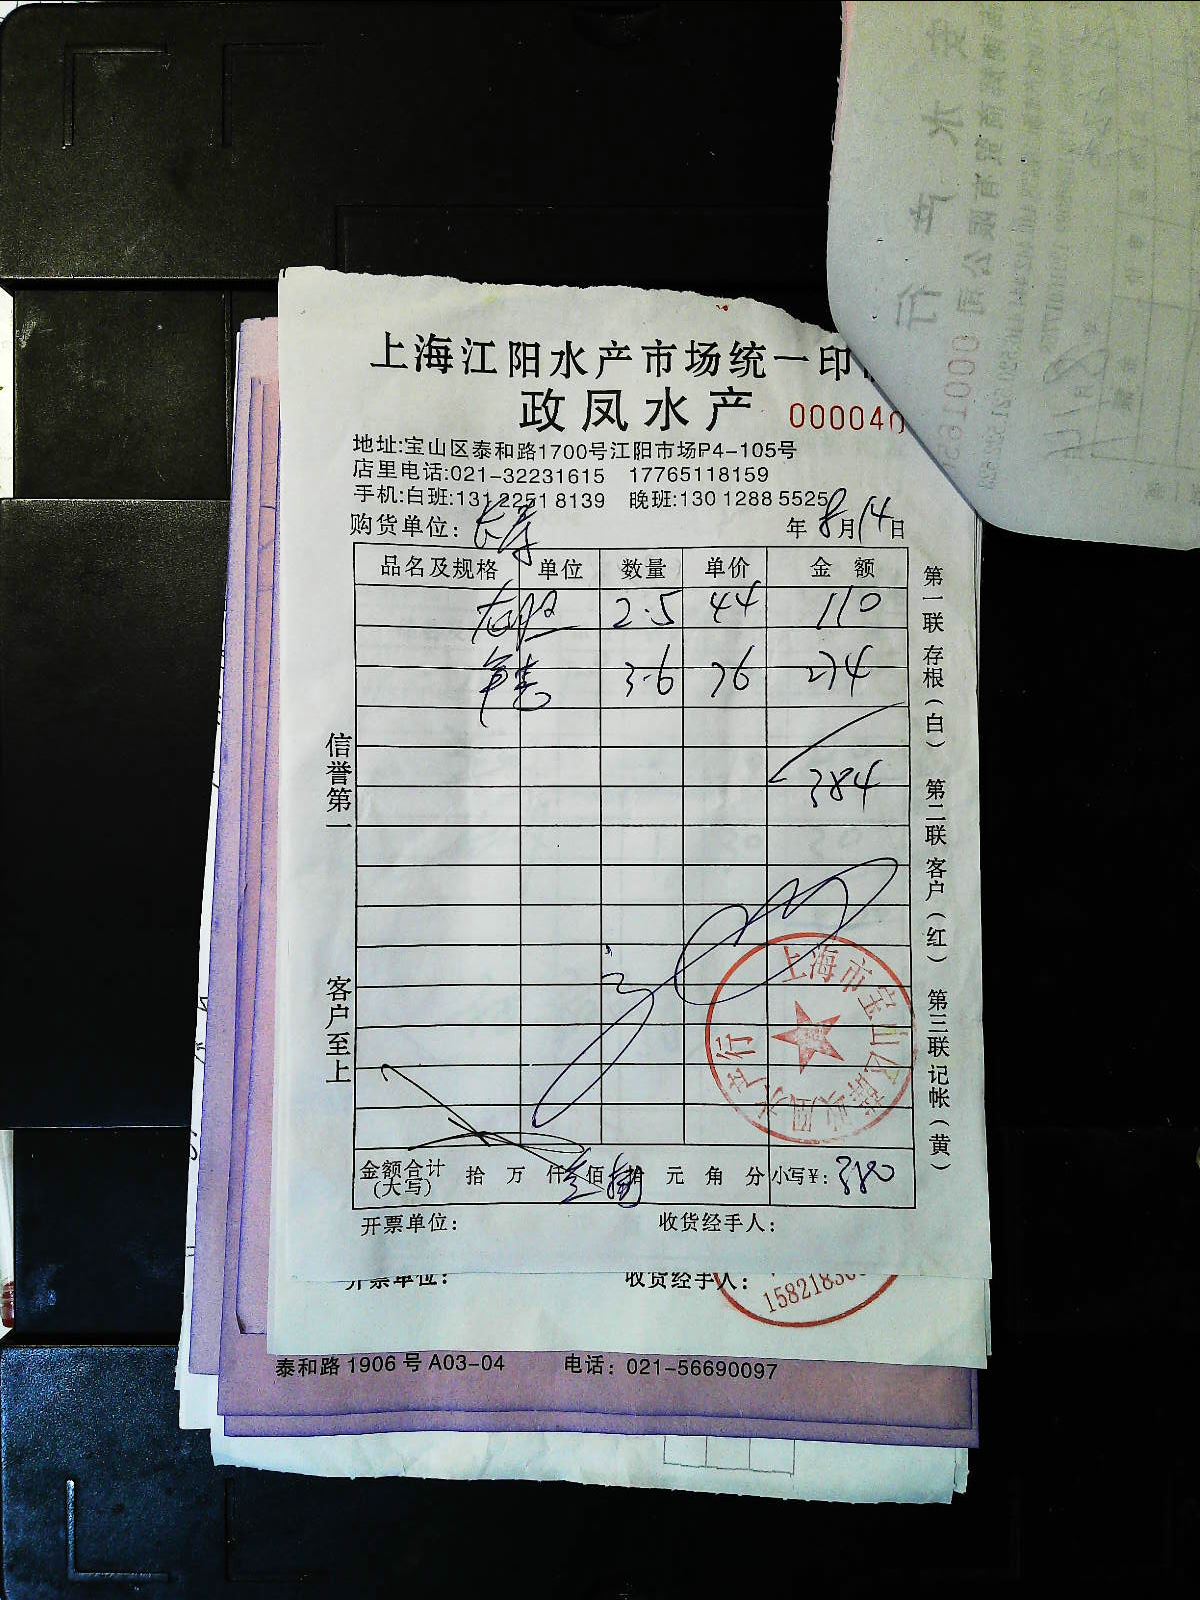 上海江阳水产市场统一印
政凤水产 000040
地址:宝山区泰和路1700号江阳市场P4-105号
店里电话:021-32231615 17765118159
手机:白班:131 2251 8139 晚班:130 1288 5525
购货单位: 长寿 年 8 月 14 日
品名及规格 单位 数量 单价 金额
2.5 44 110
3.6 76 274
384
信誉第一
客户至上
第一联 存根(白) 第二联 客户(红) 第三联 记帐(黄)
上海市宝山区 政凤水产行
金额合计(大写) 拾 万 仟 佰 拾 元 角 分 小写¥: 380
开票单位: 收货经手人:
开票单位: 收货经手人:
泰和路 1906 号 A03-04 电话: 021-56690097